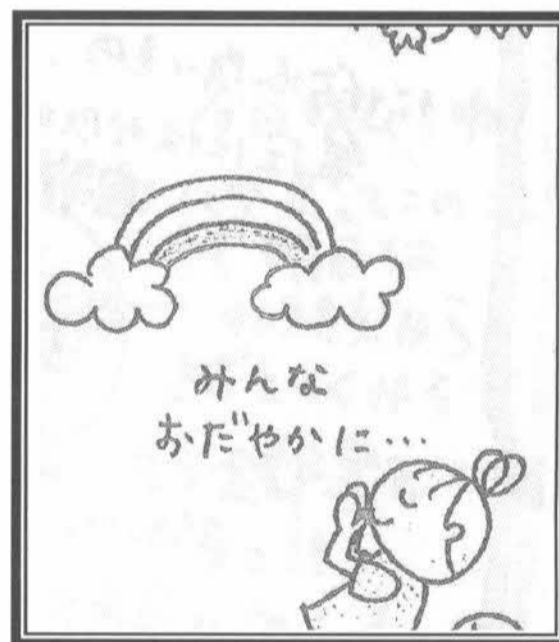 みんな
おだやかに…